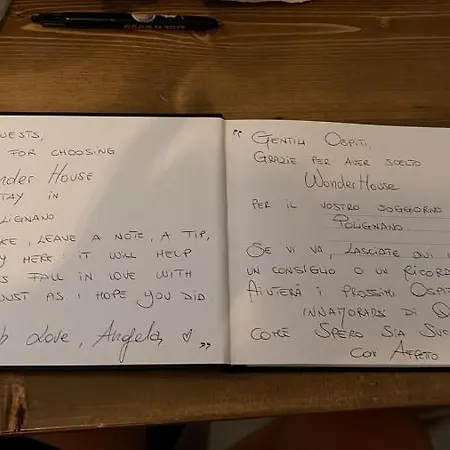 UESTS,
FOR CHOOSING
nder House
TAY IN
LIGNANO
KE, LEAVE A NOTE, A TIP,
Y HERE: IT WILL HELP
S FALL IN LOVE WITH
JUST AS I HOPE YOU DID
Love, Angela, ♡ "
" GENTILI OSPITI,
GRAZIE PER AVER SCELTO
WonderHouse
PER IL VOSTRO SOGGIORNO
POLIGNANO
SE VI VA, LASCIATE QUI U
UN CONSIGLIO O UN RICORD
AIUTERÀ I PROSSIMI OSPIT
INNAMORARSI DI Q
COME SPERO SIA SUC
CON AFFETO